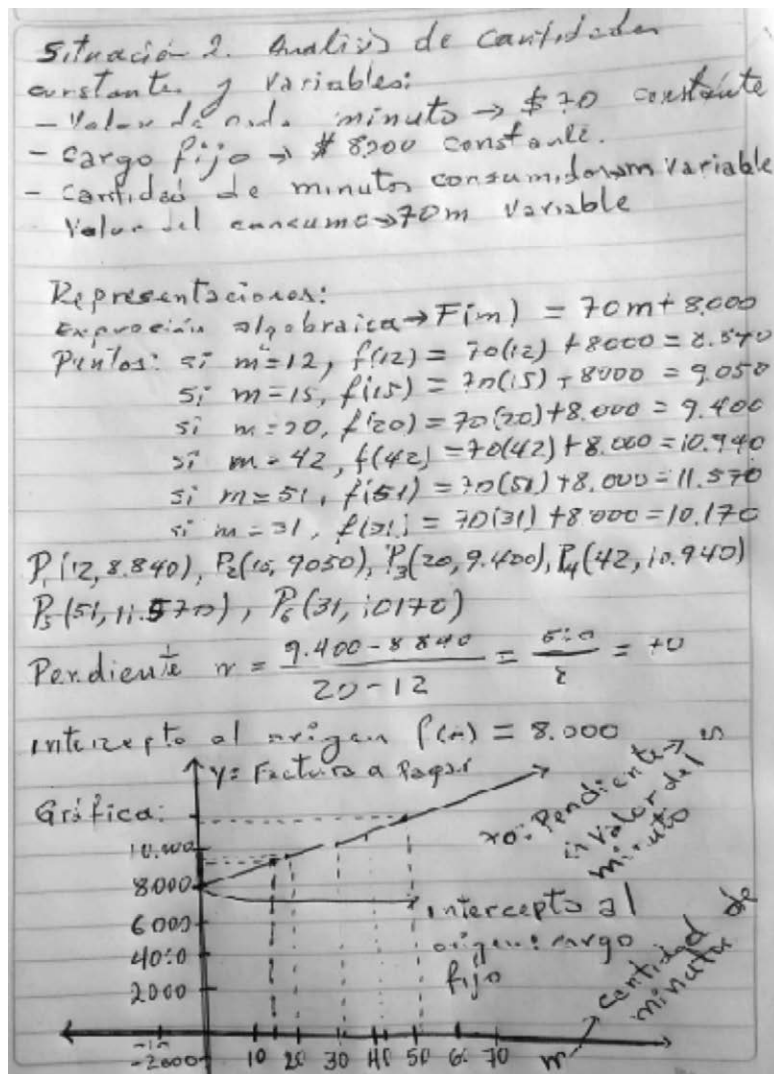 Situación 2. Analisis de Cantidades
constantes y variables:
- Valor de cada minuto → $70 constante
- cargo fijo → $ 8000 constante.
- Cantidad de minutos consumidos → m variable
Valor del consumo → 70m variable
Representaciones:
Expresión algebraica → F(m) = 70m + 8.000
Puntos: si m = 12, f(12) = 70(12) + 8000 = 8.840
si m = 15, f(15) = 70(15) + 8000 = 9.050
si m = 20, f(20) = 70(20) + 8.000 = 9.400
si m = 42, f(42) = 70(42) + 8.000 = 10.940
si m = 51, f(51) = 70(51) + 8.000 = 11.570
si m = 31, f(31) = 70(31) + 8000 = 10.170
P1(12, 8.840), P2(15, 9050), P3(20, 9.400), P4(42, 10.940)
P5(51, 11.570), P6(31, 10170)
Pendiente = 9.400 - 8840 / 20 - 12 = 560 / 8 = 70
intercepto al origen = 8.000
Y = Factura a Pagar
Gráfica:
70: Pendiente →
valor del
minuto
10.000
8000
6000
4000
2000
intercepto al
origen: cargo
fijo
Cantidad de
minutos
m
-10
-2000
10 20 30 40 50 60 70